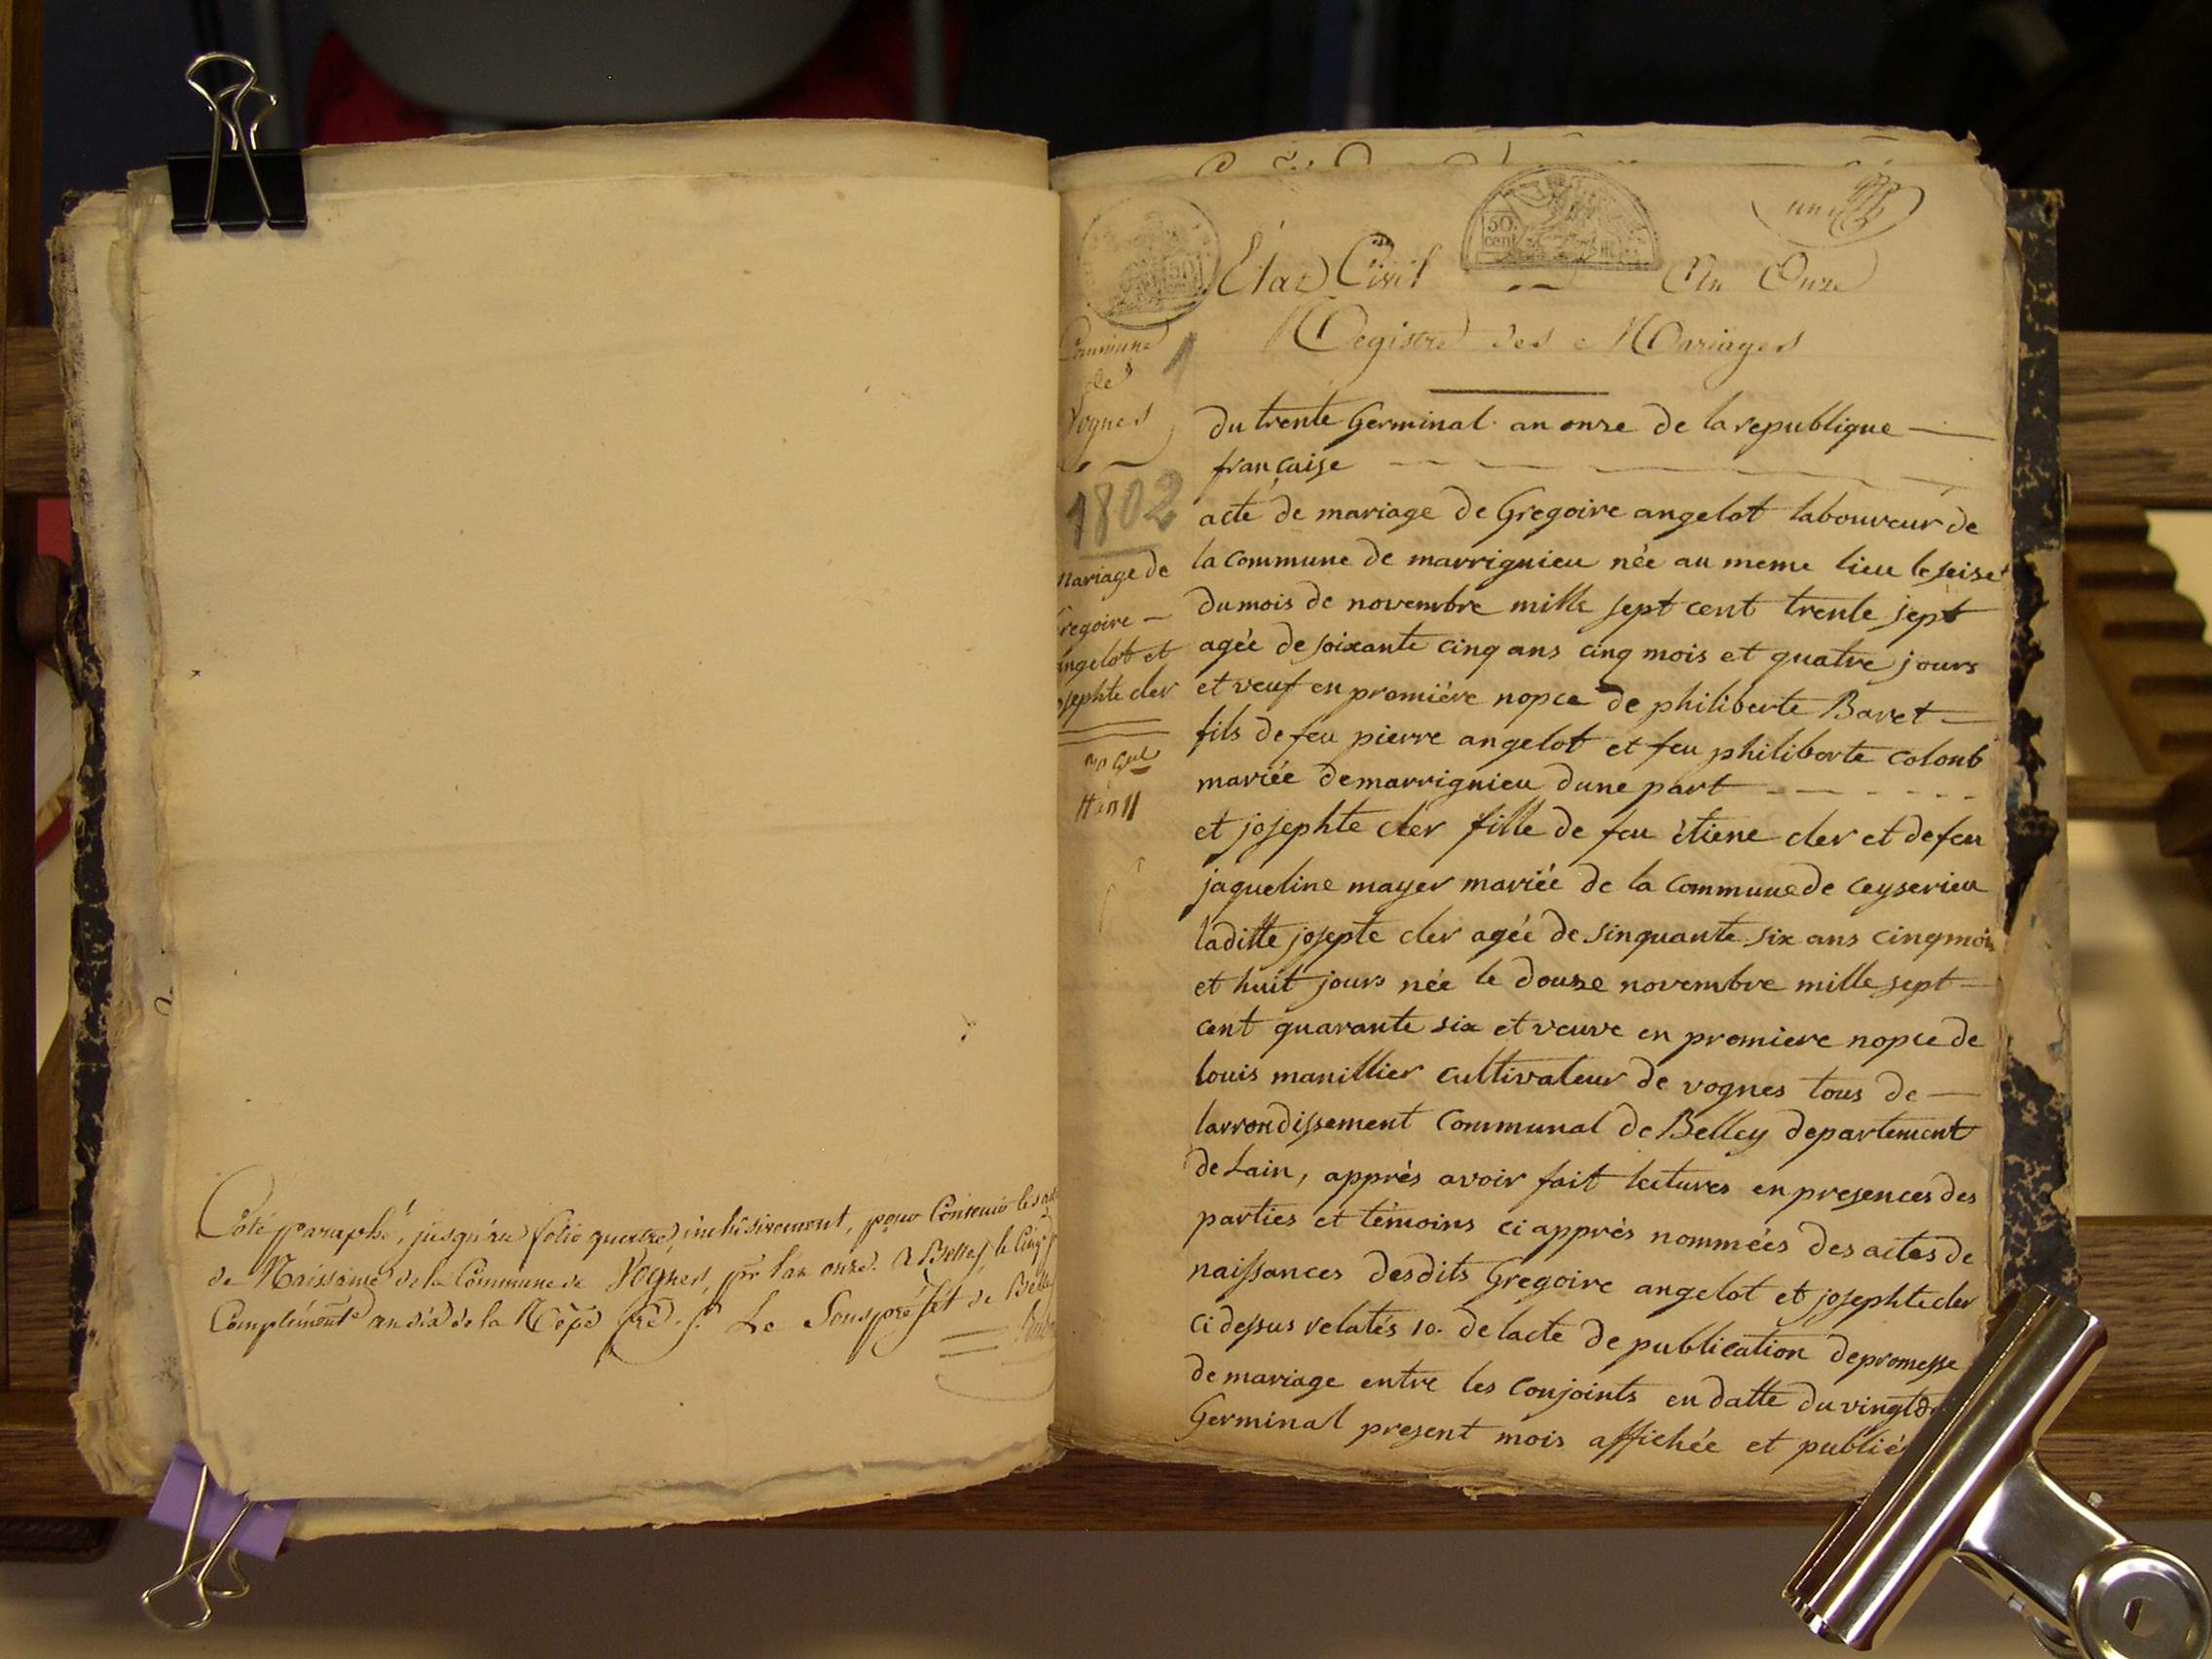 Coté paraphé, jusqu'au folio quatre, inclusivement, pour Contenir les
de Naissance de la Commune de Vognes, pr l'an onze. A Belley, le Cinq
Complémente an dix de la Repe fre. Le Souspréfet de Belle
50
50.
cent
un
Etat Civil An Onze
Registre des Mariages
Commune
de
Vognes
1
1802
Mariage de
regoire —
angelot et
osephte cler
30 Gal
an 11
du trente Germinal an onze de la republique —
française
acte de mariage de Gregoire angelot laboureur de
la commune de marrignieu née au meme lieu le seise
du mois de novembre mille sept cent trente sept
agée de soixante cinq ans cinq mois et quatre jours
et veuf en première nopce de philiberte Baret —
fils de feu pierre angelot et feu philiberte colomb
mariée de marrignieu dune part
et josephte cler fille de feu étiene cler et de feu
jaqueline mayer mariée de la commune de ceyserieu
laditte josepte cler agée de sinquante six ans cinq mois
et huit jours née le douze novembre mille sept —
cent quarante six et veuve en premiere nopce de
louis manillier cultivateur de vognes tous de —
larrondissement communal de Belley departement
de Lain, apprès avoir fait lectures en presences des
parties et témoins ci apprès nommées des actes de
naissances desdits Gregoire angelot et josephte cler
ci dessus relatés 10. de lacte de publication de promesse
de mariage entre les conjoints en datte du vingt
Germinal present mois affichée et publiés